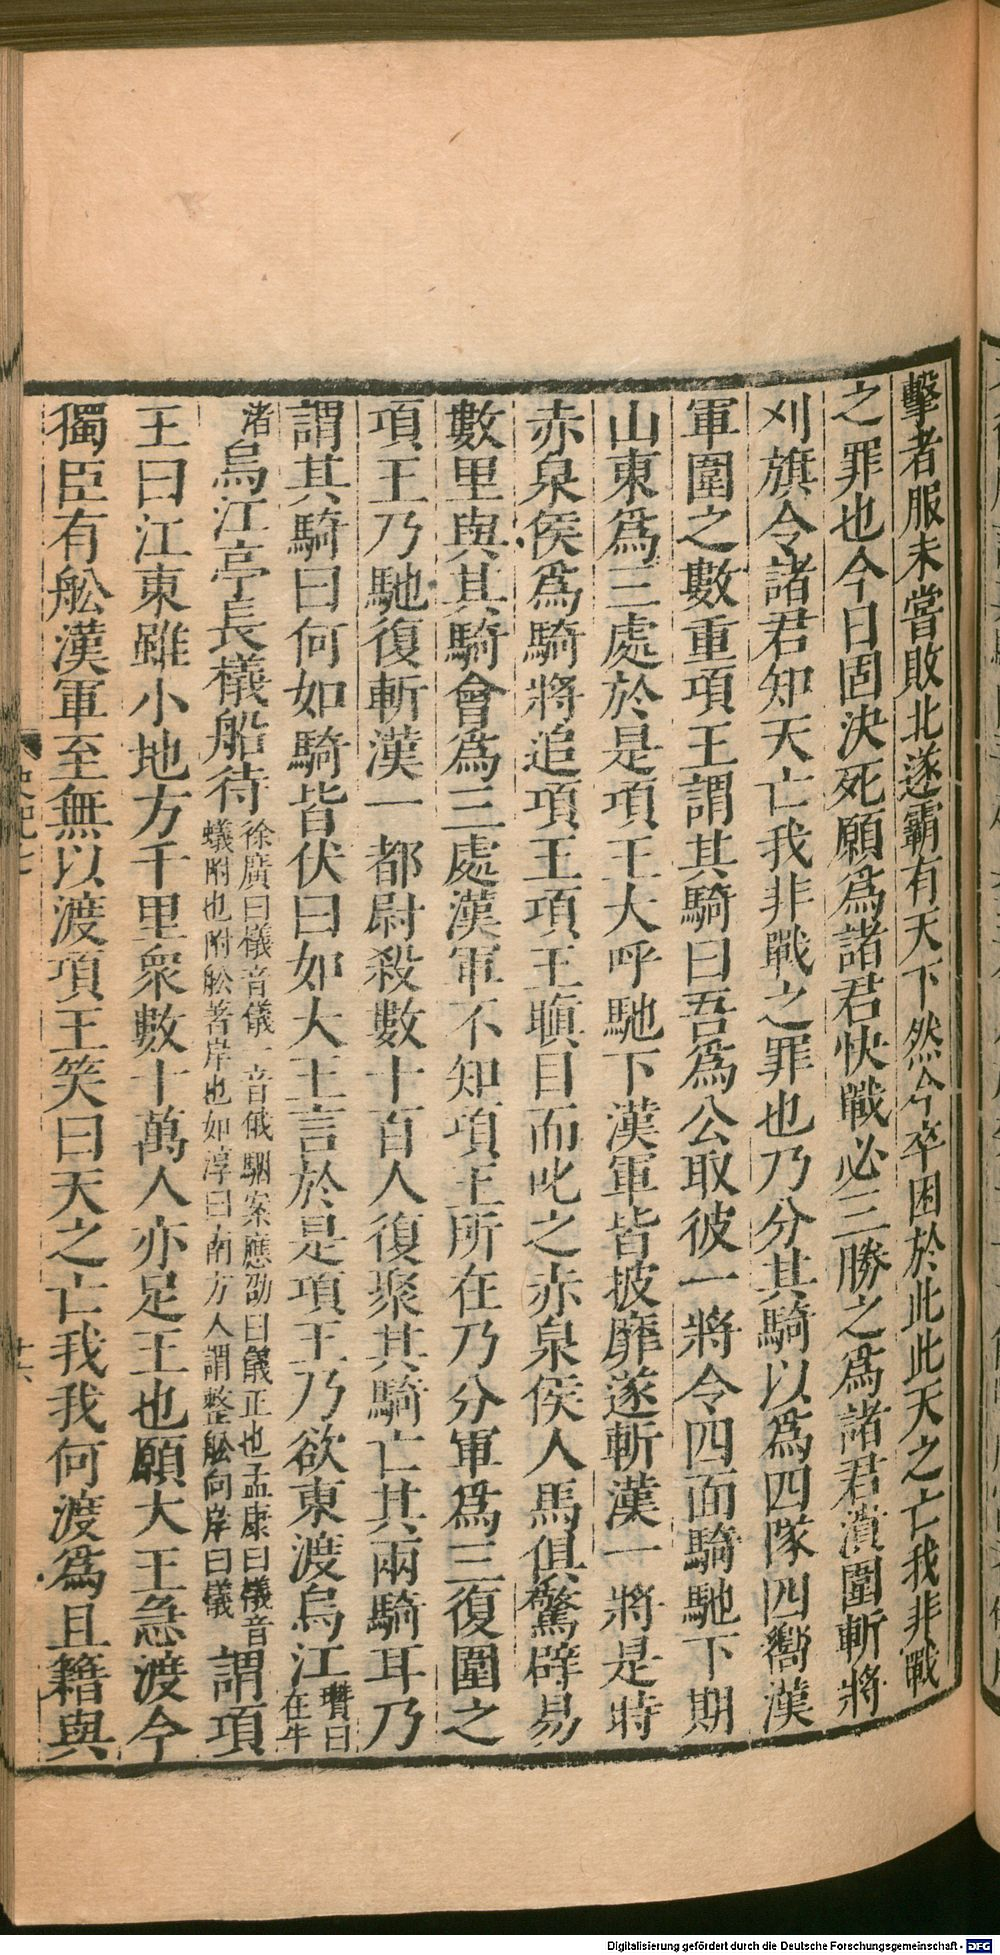 擊者服未嘗敗北遂霸有天下然今卒困於此此天之亡我非戰
之罪也今日固決死願爲諸君快戰必三勝之爲諸君潰圍斬將
刈旗令諸君知天亡我非戰之罪也乃分其騎以爲四隊四嚮漢
軍圍之數重項王謂其騎曰吾爲公取彼一將令四面騎馳下期
山東爲三處於是項王大呼馳下漢軍皆披靡遂斬漢一將是時
赤泉侯爲騎將追項王項王瞋目而叱之赤泉侯人馬俱驚辟易
數里與其騎會爲三處漢軍不知項王所在乃分軍爲三復圍之
項王乃馳復斬漢一都尉殺數十百人復聚其騎亡其兩騎耳乃
謂其騎曰何如騎皆伏曰如大王言於是項王乃欲東渡烏江瓚曰在牛
渚烏江亭長檥船待徐廣曰檥音儀一音俄駰案應劭曰檥正也孟康曰檥音蟻附也附舩著岸也如淳曰南方人謂整舩向岸曰檥謂項
王曰江東雖小地方千里衆數十萬人亦足王也願大王急渡今
獨臣有舩漢軍至無以渡項王笑曰天之亡我我何渡爲且籍與
史記七
十六
Digitalisierung gefördert durch die Deutsche Forschungsgemeinschaft - DFG